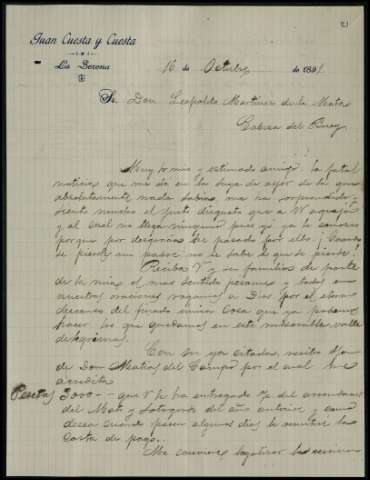 Juan Cuesta y Cuesta
La Serena
16 de Octubre de 1891.
Sr. Don Leopoldo Martinez de la Mata
Cabeza del Buey
Muy Sr mio y estimado amigo: la fatal
noticia que me da en la suya de ayer de la que
absolutamente nada sabia, me ha sorprendido y
siento mucho el justo disgusto que a V aqueja
y al cual no llega ninguno pues yo ya lo conozco
porque por desgracia he pasado por ello ¡Cuando
se pierde un padre no se sabe lo que se pierde!
Reciba V y su familia de parte
de la mia el mas sentido pesame y todos en
nuestras oraciones rogamos a Dios por el eterno
descanso del finado unica cosa que ya podemos
hacer los que quedamos en este miserable valle
de lagrimas.
Con su ya citada, recibo
de Don Matias del Campo por el cual le
acredito
Pesetas 3000 -- que V le ha entregado del
del y del año anterior y como
desea cuando pasen algunos dias le remitire la
carta de pago.
Me conviene